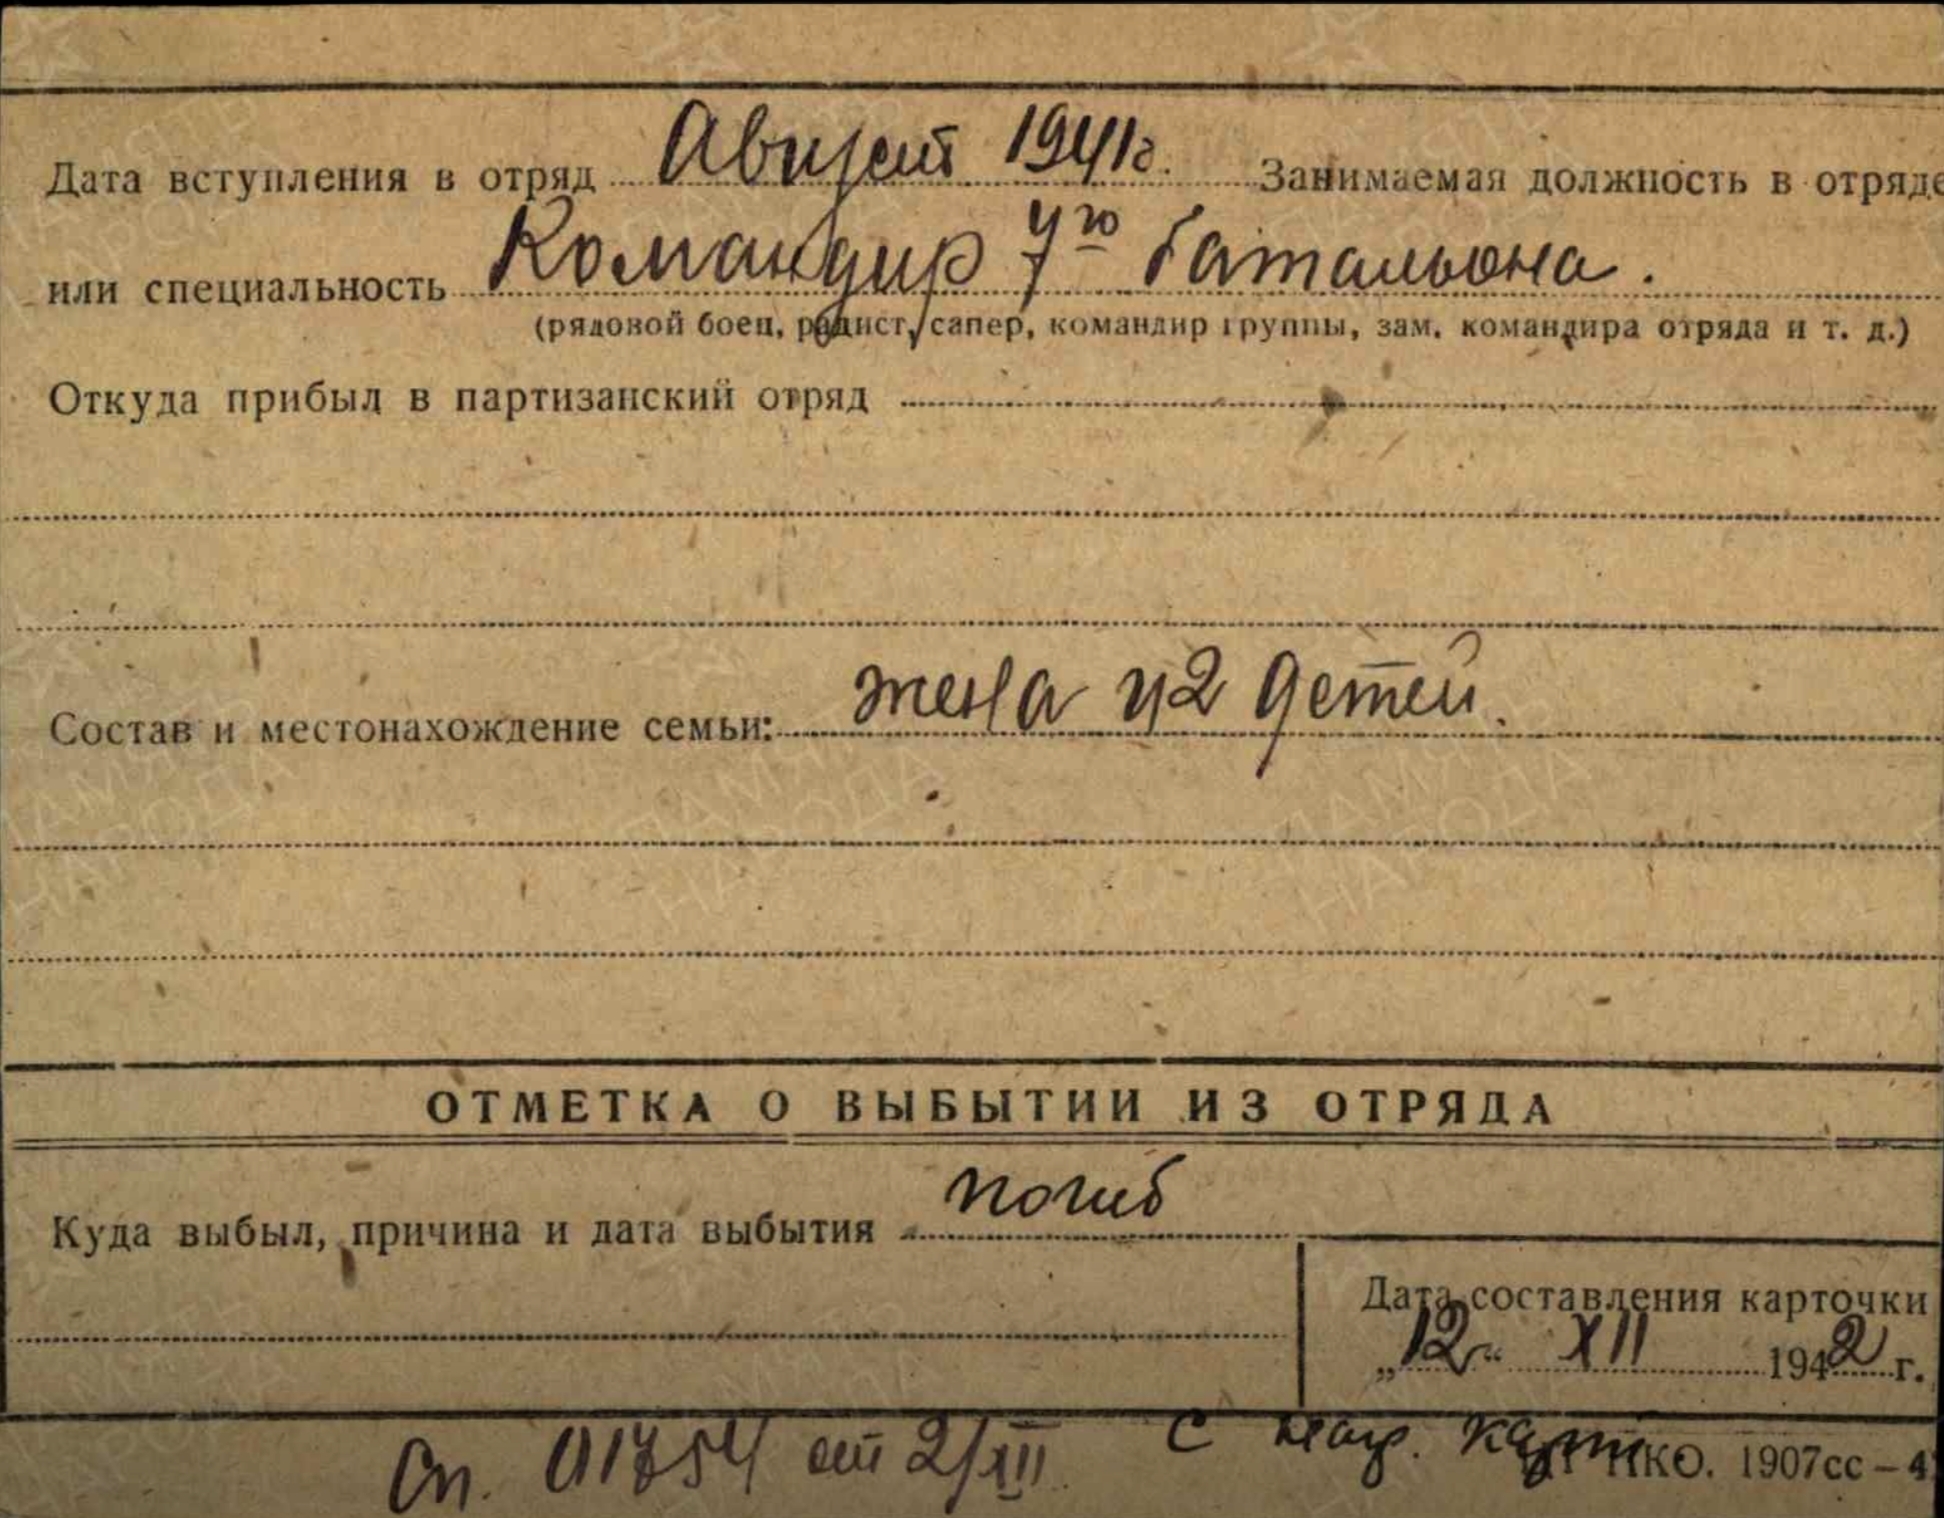 Дата вступления в отряд Август 1941г. Занимаемая должность в отряде
или специальность Командир 4го батальона.
(рядовой боец, радист, сапер, командир группы, зам. командира отряда и т. д.)
Откуда прибыл в партизанский отряд
Состав и местонахождение семьи: жена и 2 детей.
ОТМЕТКА О ВЫБЫТИИ ИЗ ОТРЯДА
Куда выбыл, причина и дата выбытия погиб
Дата составления карточки
„12“ XII 1942 г.
Сп. 01754 от 2/XII с
НКО. 1907сс – 4
ПАМЯТЬ НАРОДА